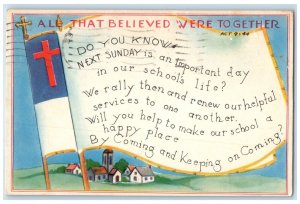 ALL THAT BELIEVED WERE TOGETHER
ACT 2:44
DO YOU KNOW
NEXT SUNDAY is an important day
in our school's life?
We rally then and renew our helpful
services to one another.
Will you help to make our school a
happy place
By Coming and Keeping on Coming?